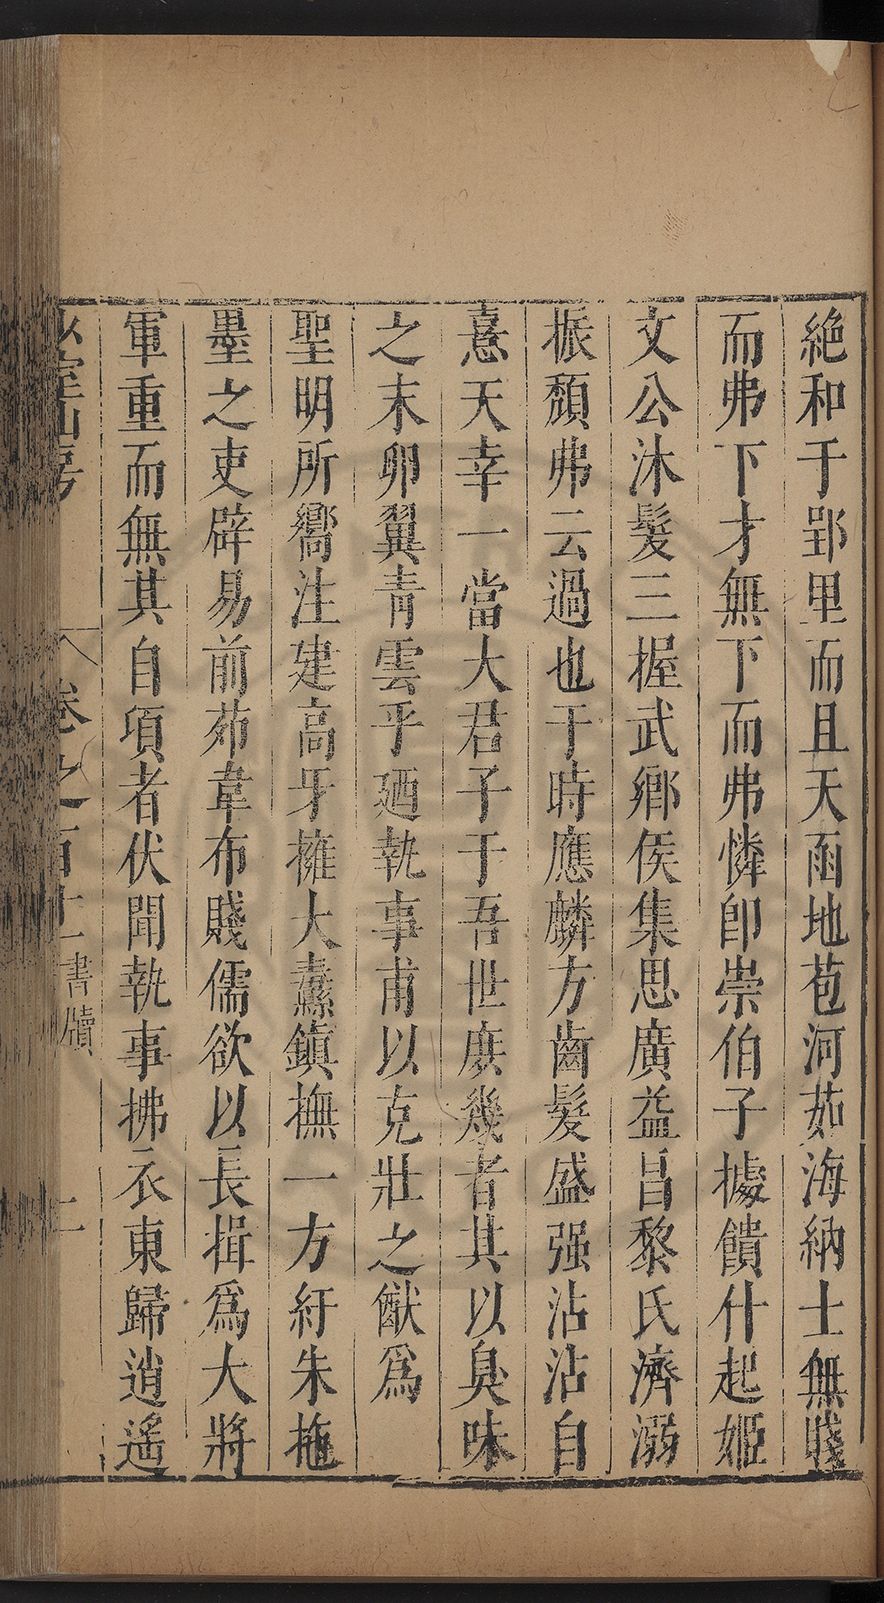 絶和于郢里而且天雨地苞河茹海納士無賤
而弗下才無下而弗憐卽崇伯子據饋什起姬
文公沐髮三握武鄉侯集思廣益昌黎氏濟溺
振頽弗云過也于時應麟方齒髮盛强沾沾自
憙天幸一當大君子于吾世庶幾者其以臭味
之末卵翼青雲乎廼執事甫以克壯之猷爲
聖明所嚮注建高牙擁大纛鎮撫一方紆朱拖
墨之吏辟易前茆韋布賤儒欲以長揖爲大將
軍重而無其自項者伏聞執事拂衣東歸逍遙
少室山房
卷之百十二
書牘
二